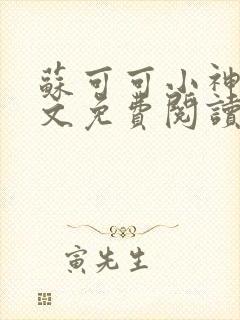 蘇可可小神
文免費閱讀
寅先生